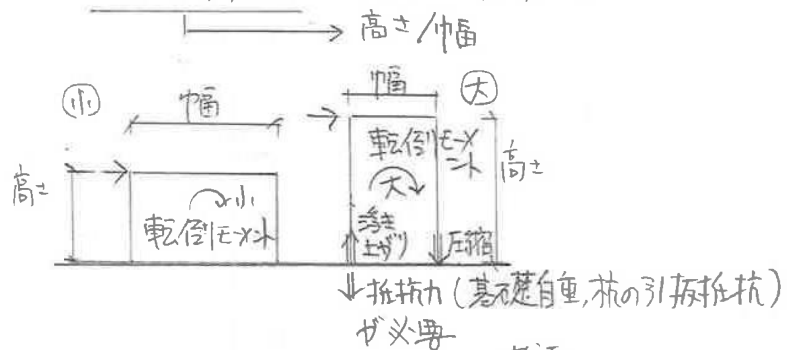 高さ/巾畐
小
巾畐
巾畐
大
高さ
小
転倒モーメント
転倒モーメ
ント
大
高さ
浮き
上がり
圧縮
抵抗力(基礎自重,杭の引抜抵抗)
が必要